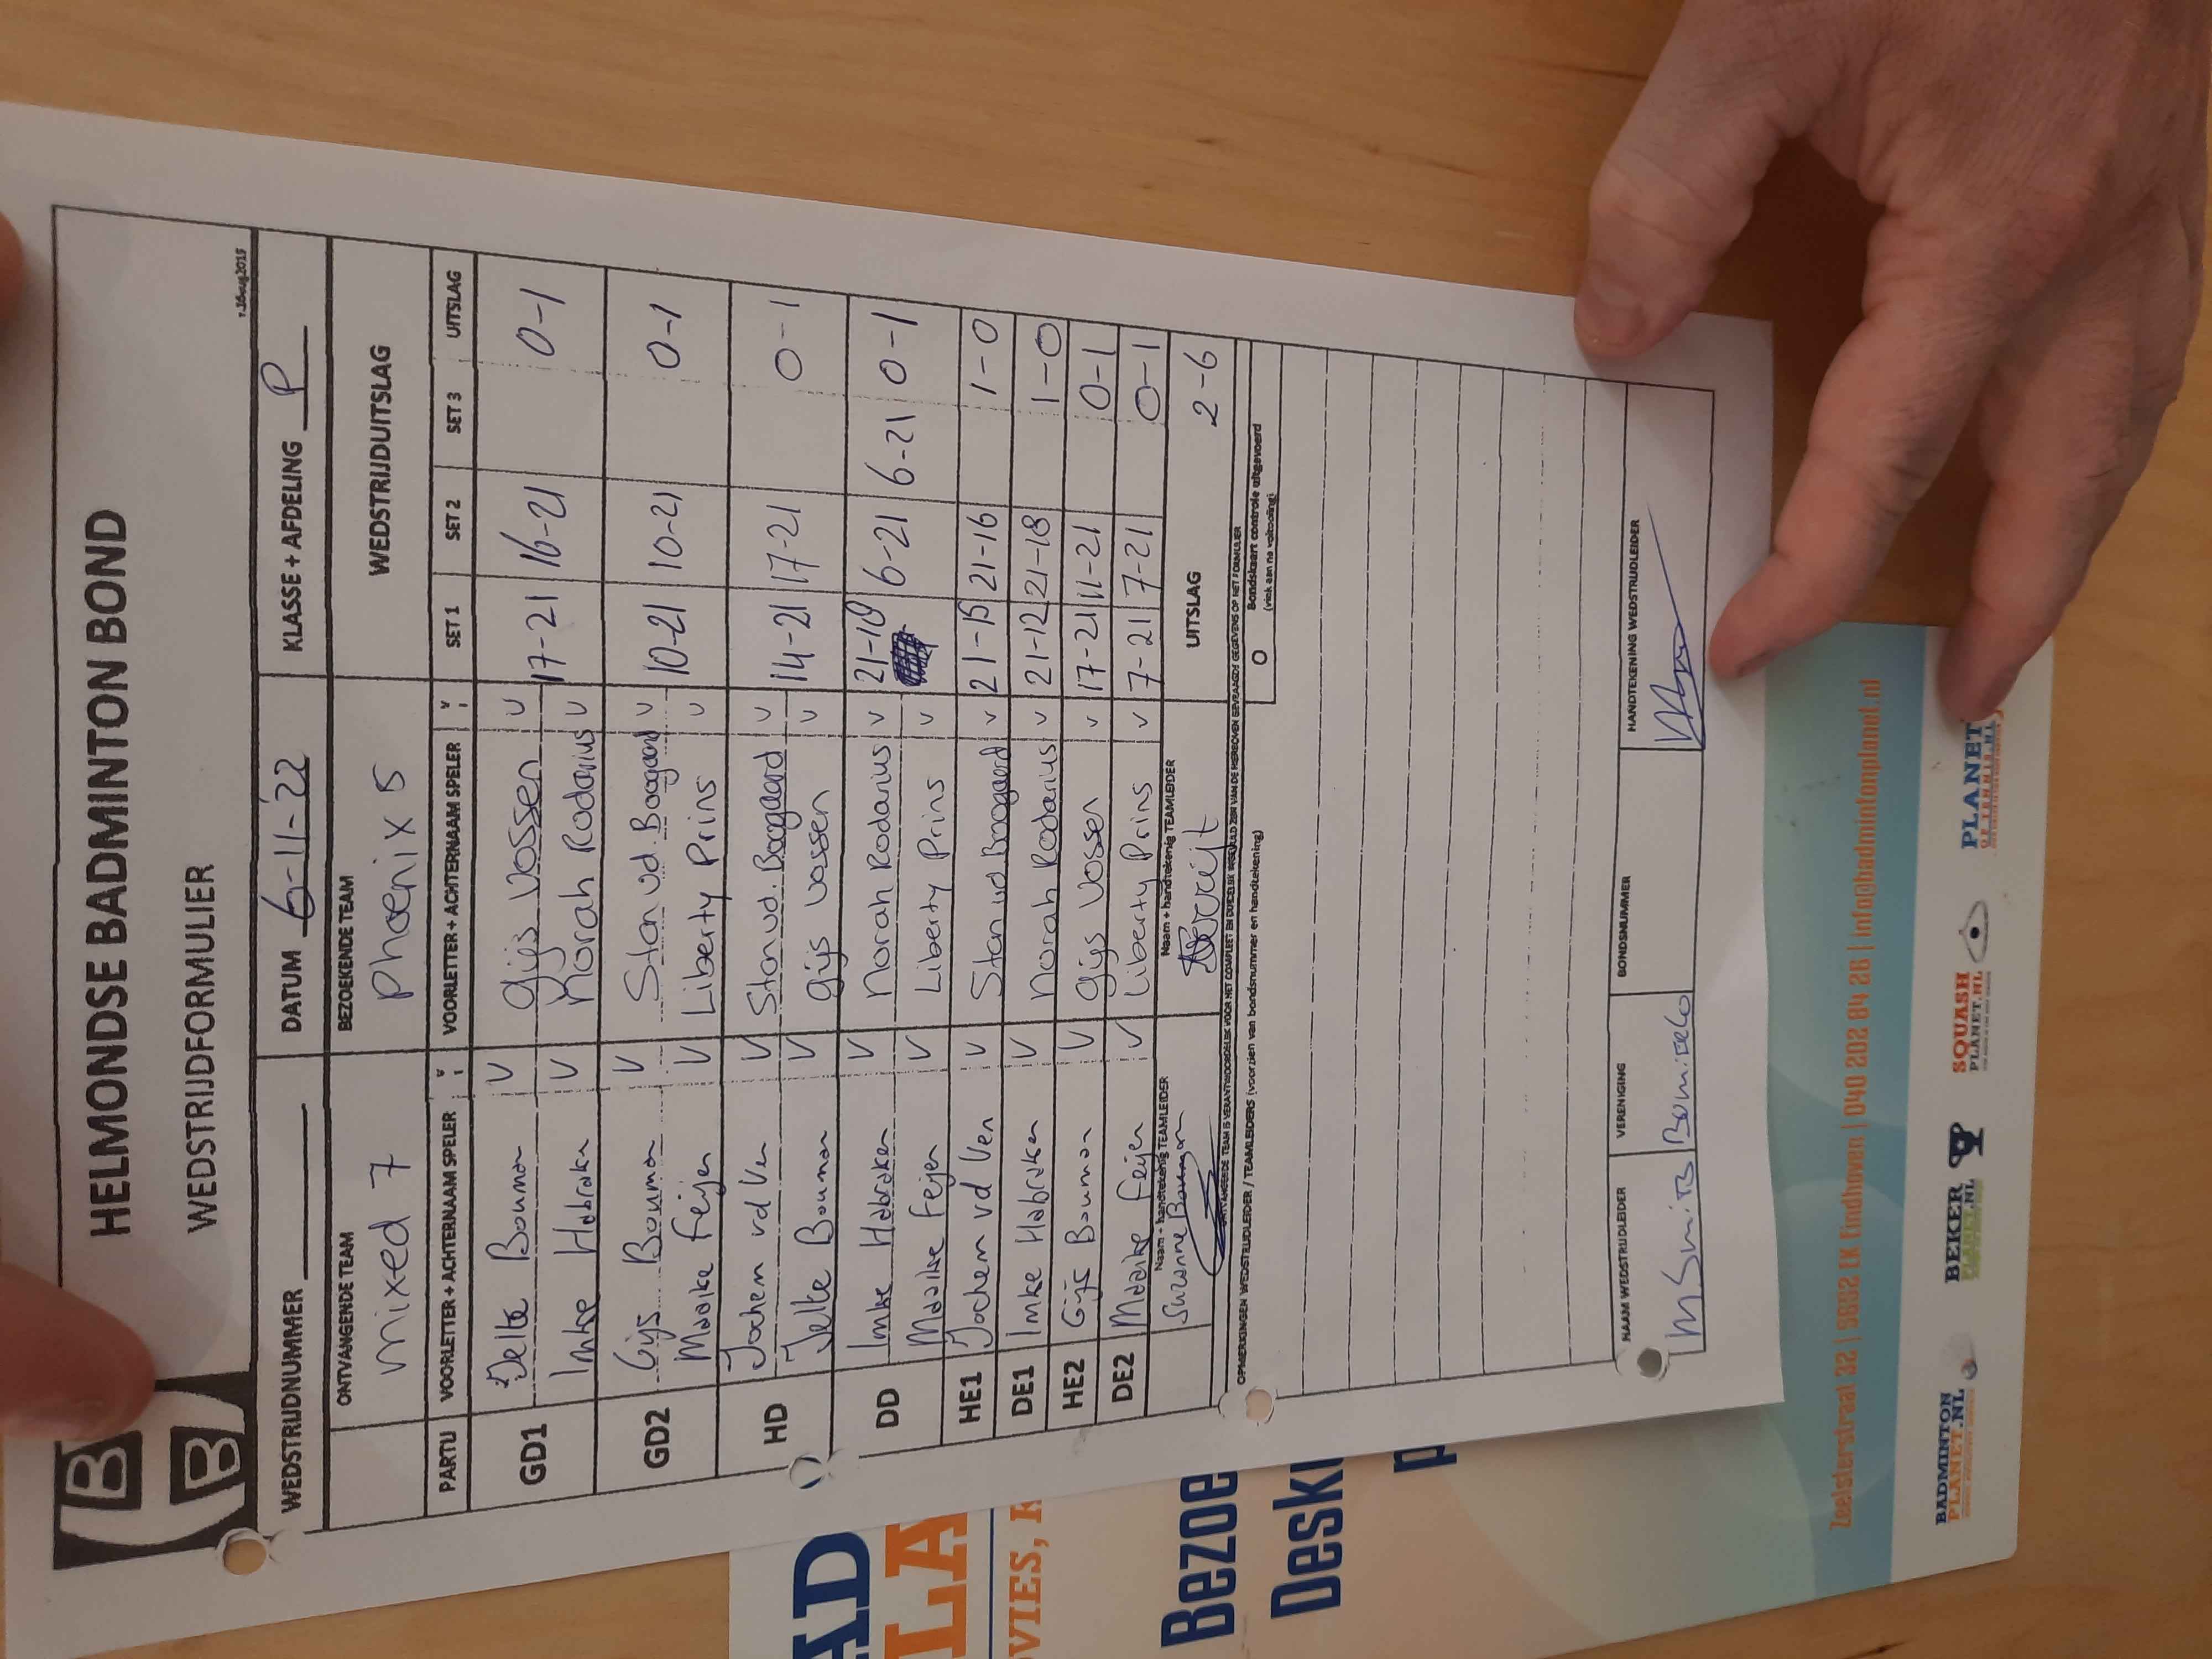 HELMONDSE BADMINTON BOND
WEDSTRIJDFORMULIER
v.18aug2015
WEDSTRIJDNUMMER DATUM 6-11-'22 KLASSE + AFDELING P
ONTVANGENDE TEAM BEZOEKENDE TEAM WEDSTRIJDUITSLAG
mixed 7 Phoenix 5
PARTIJ VOORLETTER + ACHTERNAAM SPELER V VOORLETTER + ACHTERNAAM SPELER V SET 1 SET 2 SET 3 UITSLAG
GD1 Jelte Bouman V Gijs Vossen V 17-21 16-21 0-1
Imke Habraken V Norah Rodarius V
GD2 Gijs Bouman V Stan vd. Boogaard V 10-21 10-21 0-1
Maaike Feijen V Liberty Prins V
HD Jochem vd Ven V Stan vd. Boogaard V 14-21 17-21 0-1
Jelte Bouman V Gijs Vossen V
DD Imke Habraken V Norah Rodarius V 21-18 6-21 6-21 0-1
Maaike Feijen V Liberty Prins V
HE1 Jochem vd Ven V Stan vd Boogaard V 21-15 21-16 1-0
DE1 Imke Habraken V Norah Rodarius V 21-12 21-18 1-0
HE2 Gijs Bouman V Gijs Vossen V 17-21 11-21 0-1
DE2 Maaike Feijen V Liberty Prins V 7-21 7-21 0-1
Naam + handtekenig TEAMLEIDER Naam + handtekenig TEAMLEIDER UITSLAG 2-6
Suzanne Bouman
ONTVANGENDE TEAM IS VERANTWOORDELIJK VOOR HET COMPLEET EN DUIDELIJK INGEVULD ZIJN VAN DE HIERBOVEN GEVRAAGDE GEGEVENS OP HET FORMULIER
OPMERKINGEN WEDSTRIJDLEIDER / TEAMLEIDERS (voorzien van bondsnummer en handtekening)
O Bondskaart controle uitgevoerd
(vink aan na voltooiing)
NAAM WEDSTRIJDLEIDER VERENIGING BONDSNUMMER HANDTEKENING WEDSTRIJDLEIDER
M Smits
AD
LA
VIES, 
Bezoe
Desk
p
Zeelsterstraat 32 | 5652 EK Eindhoven | 040 202 84 26 | info@badmintonplanet.nl
BADMINTON
PLANET.NL
BEKER
PLANET.NL
SQUASH
PLANET.NL
PLANET
OF TENNIS.NL